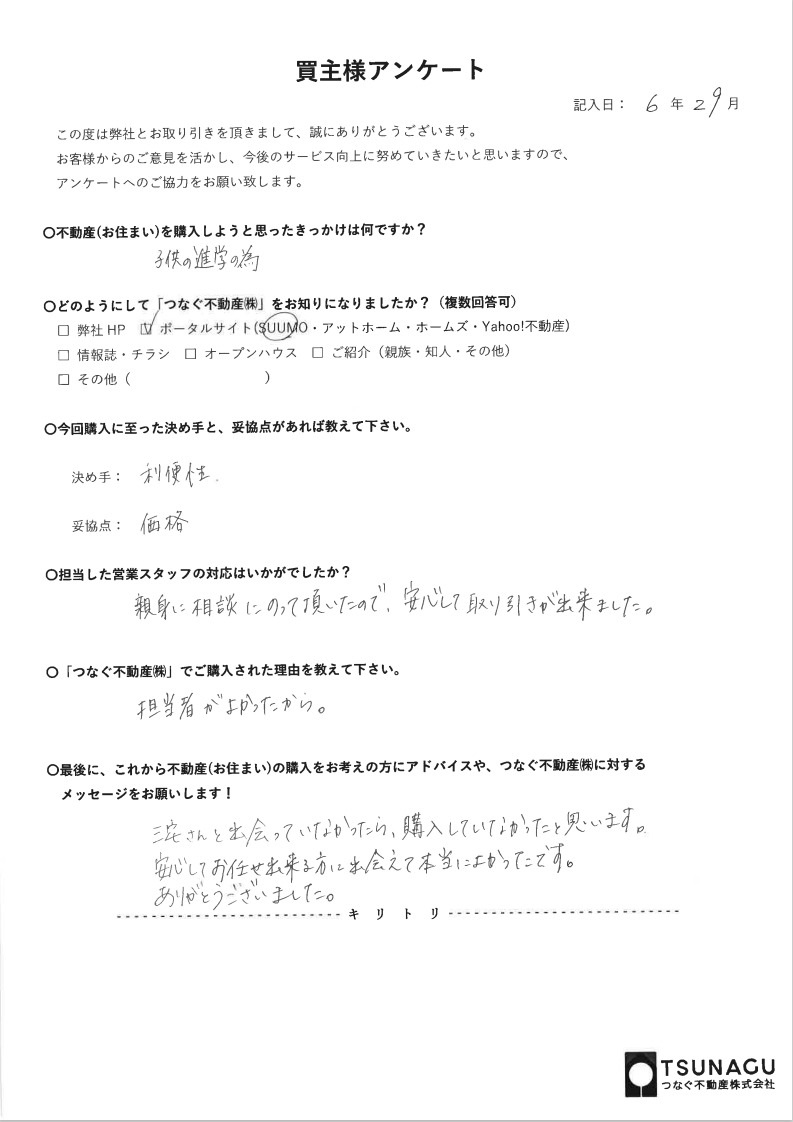 買主様アンケート
記入日： 6 年 29 月
この度は弊社とお取り引きを頂きまして、誠にありがとうございます。
お客様からのご意見を活かし、今後のサービス向上に努めていきたいと思いますので、
アンケートへのご協力をお願い致します。
〇不動産(お住まい)を購入しようと思ったきっかけは何ですか？
子供の進学の為
〇どのようにして「つなぐ不動産㈱」をお知りになりましたか？（複数回答可）
□ 弊社 HP ☑ ポータルサイト(SUUMO・アットホーム・ホームズ・Yahoo!不動産)
□ 情報誌・チラシ □ オープンハウス □ ご紹介（親族・知人・その他）
□ その他（ ）
〇今回購入に至った決め手と、妥協点があれば教えて下さい。
決め手： 利便性.
妥協点： 価格
〇担当した営業スタッフの対応はいかがでしたか？
親身に相談にのって頂いたので、安心して取り引きが出来ました。
〇「つなぐ不動産㈱」でご購入された理由を教えて下さい。
担当者がよかったから。
〇最後に、これから不動産(お住まい)の購入をお考えの方にアドバイスや、つなぐ不動産㈱に対する
メッセージをお願いします！
三宅さんと出会っていなかったら、購入していなかったと思います。
安心してお任せ出来る方に出会えて本当によかったです。
ありがとうございました。
キリトリ
TSUNAGU
つなぐ不動産株式会社